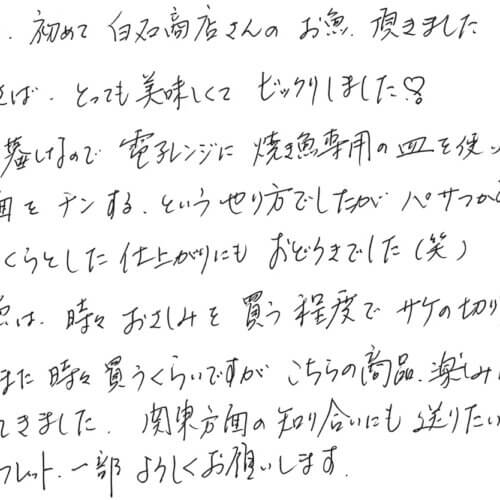 、初めて 白石商店さんの お魚、頂きました
えば、とっても美味しくて ビックリしました♡!
暮しなので 電子レンジに 焼き魚専用の皿を使っ
面をチンする、というやり方でしたが パサつか
くらとした仕上がりにも おどろきでした(笑)
魚は、時々 おさしみを 買う程度で サケの切り
また 時々買うくらいですが こちらの商品、楽しみに
てきました。 関東方面の知り合いにも送りたい
フレット、一部 よろしくお願いします。